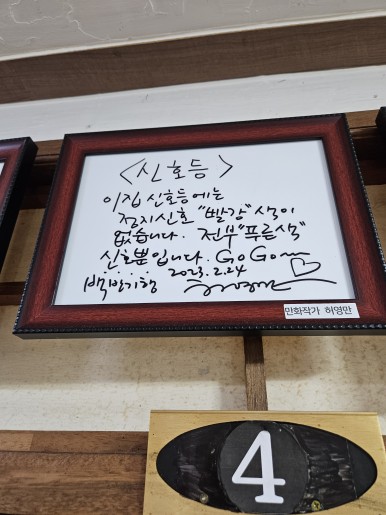 <신호등>
이집 신호등에는
정지신호 "빨강"색이
없습니다. 전부"푸른색"
신호뿐입니다. Go Go
백반기행 2023.2.24
만화작가 허영만
4